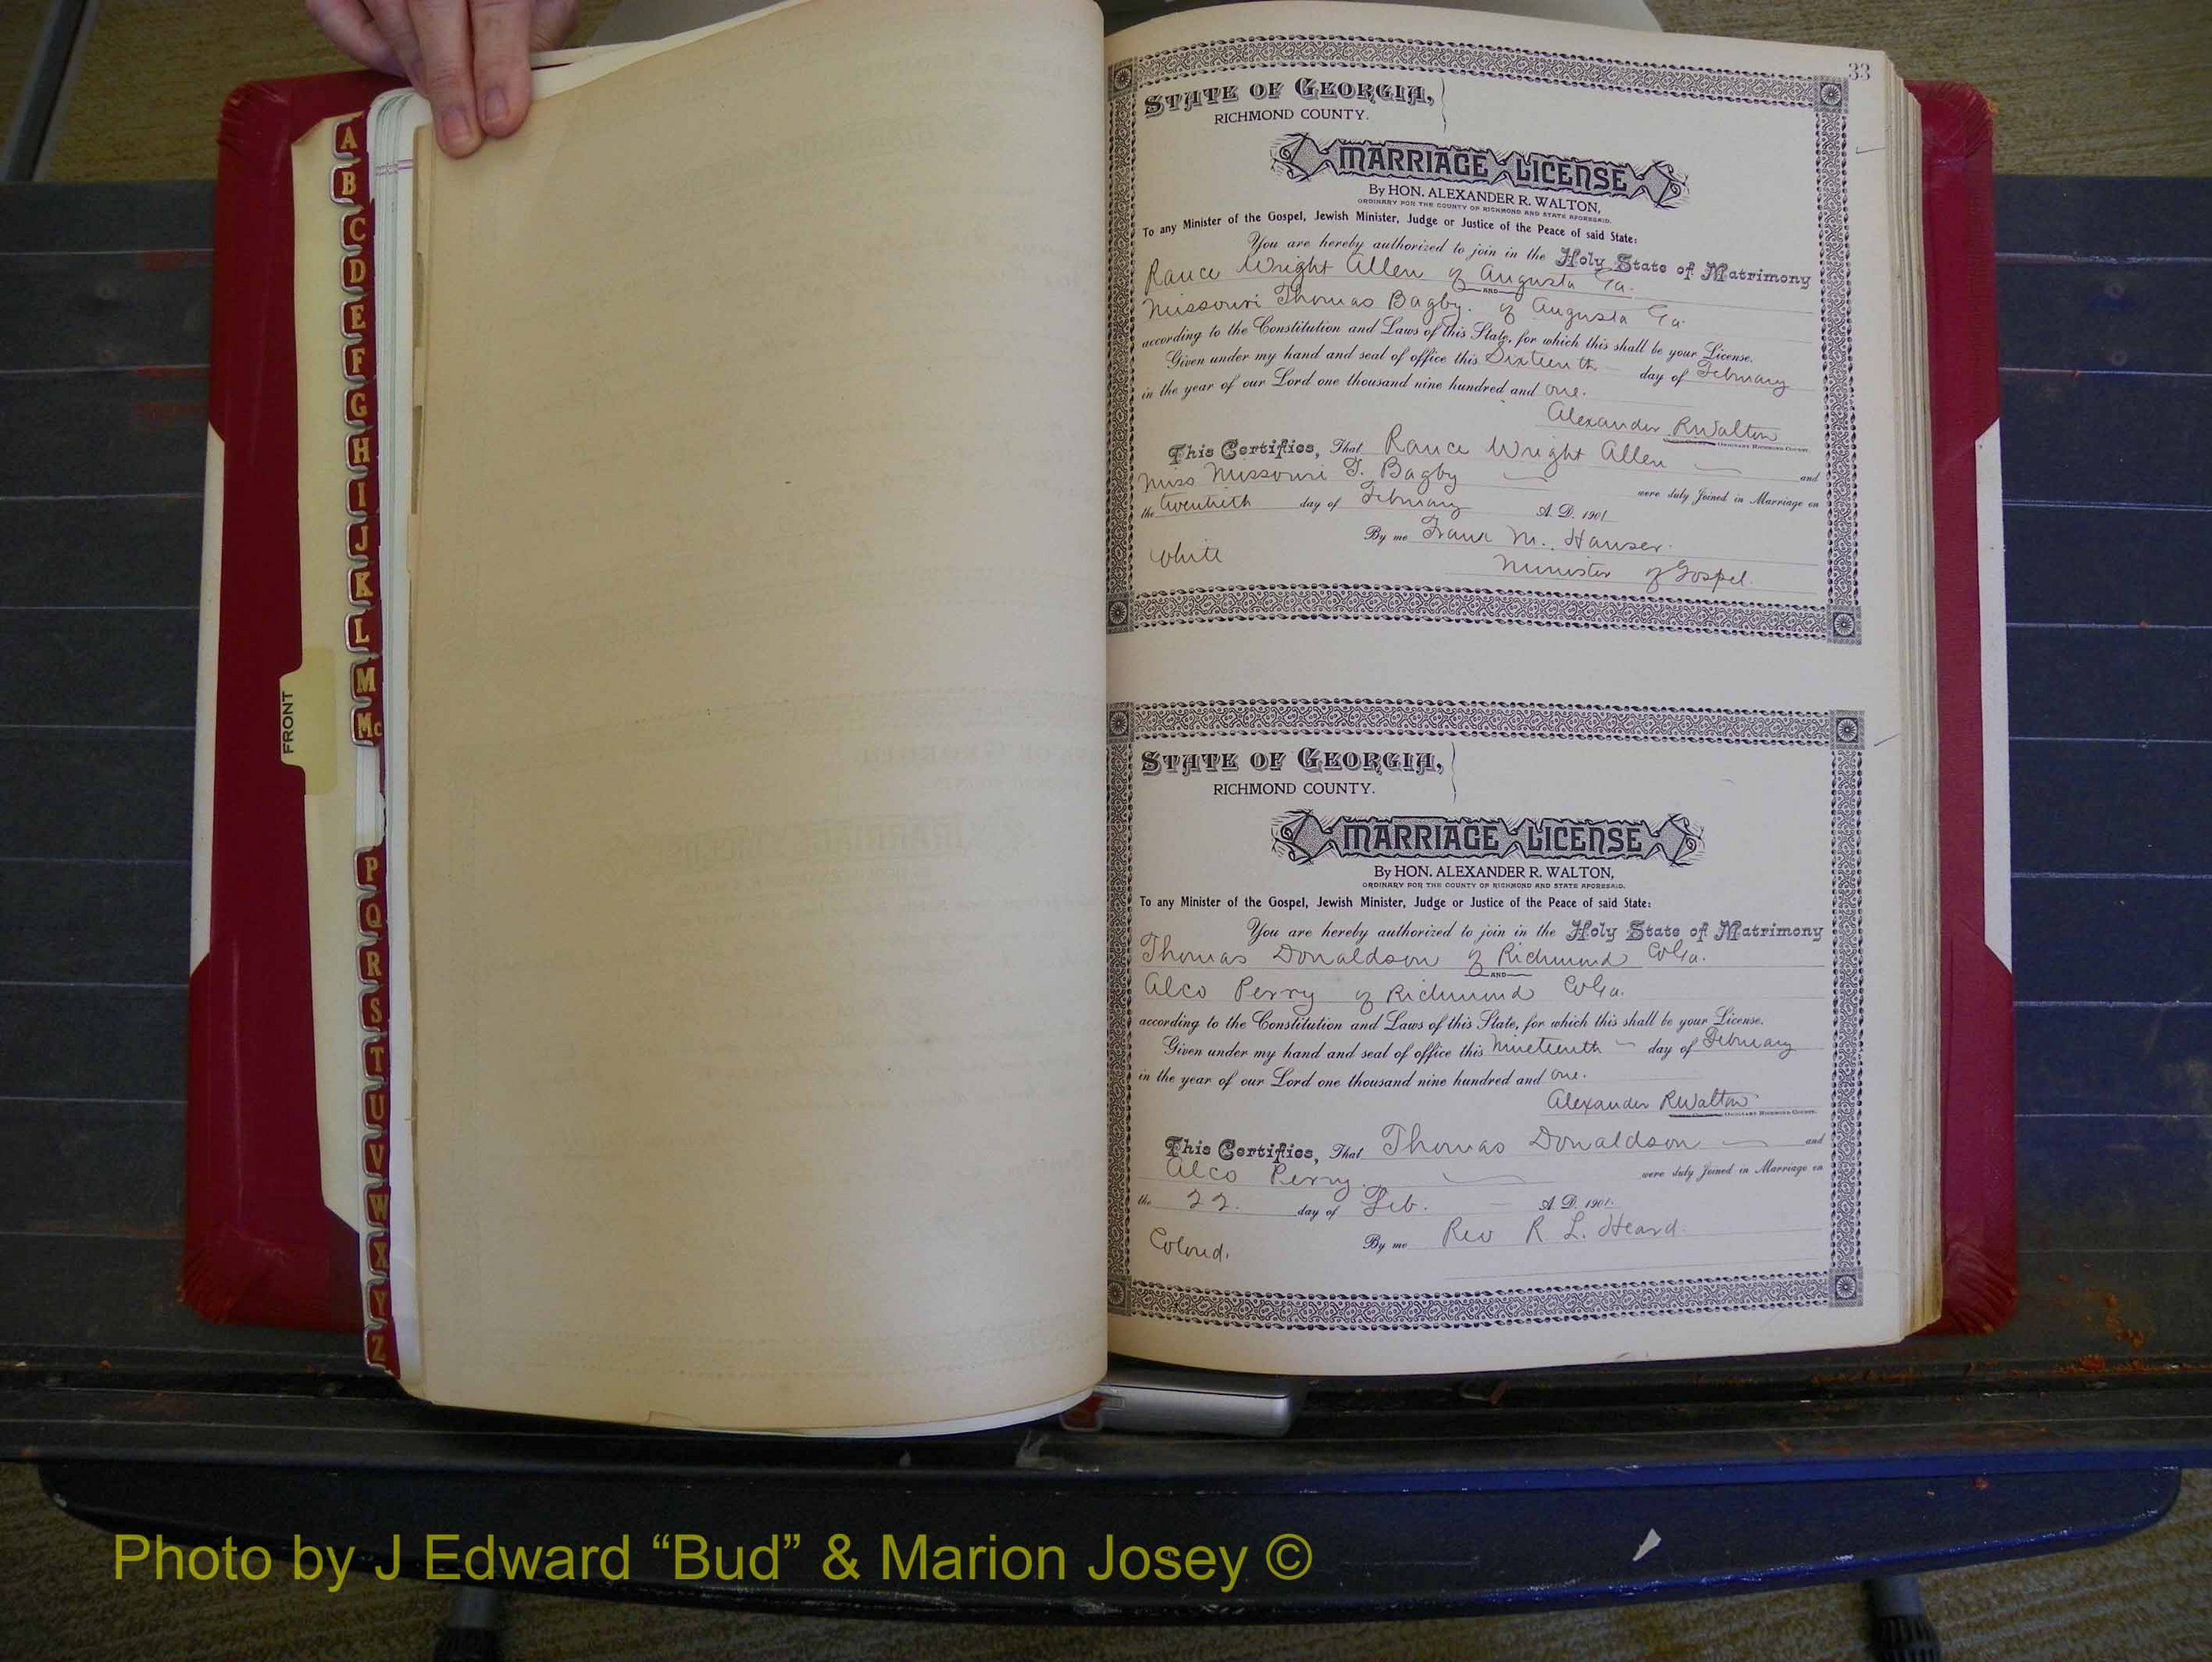 A
B
C
D
E
F
G
H
I
J
K
L
M
Mc
P
Q
R
S
T
U
V
W
X
Y
Z
FRONT
33
STATE OF GEORGIA,
RICHMOND COUNTY.
MARRIAGE LICENSE
By HON. ALEXANDER R. WALTON,
ORDINARY FOR THE COUNTY OF RICHMOND AND STATE AFORESAID.
To any Minister of the Gospel, Jewish Minister, Judge or Justice of the Peace of said State:
You are hereby authorized to join in the Holy State of Matrimony
Rance Wright Allen of Augusta Ga.
AND
Missouri Thomas Bagby. of Augusta Ga.
according to the Constitution and Laws of this State, for which this shall be your License.
Given under my hand and seal of office this Sixteenth day of February
in the year of our Lord one thousand nine hundred and one.
Alexander R Walton
ORDINARY RICHMOND COUNTY.
This Certifies, That Rance Wright Allen and
Miss Missouri T. Bagby were duly Joined in Marriage on
the twentieth day of February A. D. 1901
By me Frank M. Hauser.
White Minister of Gospel.
STATE OF GEORGIA,
RICHMOND COUNTY.
MARRIAGE LICENSE
By HON. ALEXANDER R. WALTON,
ORDINARY FOR THE COUNTY OF RICHMOND AND STATE AFORESAID.
To any Minister of the Gospel, Jewish Minister, Judge or Justice of the Peace of said State:
You are hereby authorized to join in the Holy State of Matrimony
Thomas Donaldson of Richmond Co Ga.
AND
Alco Perry of Richmond Co Ga.
according to the Constitution and Laws of this State, for which this shall be your License.
Given under my hand and seal of office this Nineteenth day of February
in the year of our Lord one thousand nine hundred and one.
Alexander R Walton
ORDINARY RICHMOND COUNTY.
This Certifies, That Thomas Donaldson and
Alco Perry. were duly Joined in Marriage on
the 22. day of Feb. A. D. 1901.
Colord. By me Rev R. L. Heard.
Photo by J Edward “Bud” & Marion Josey ©